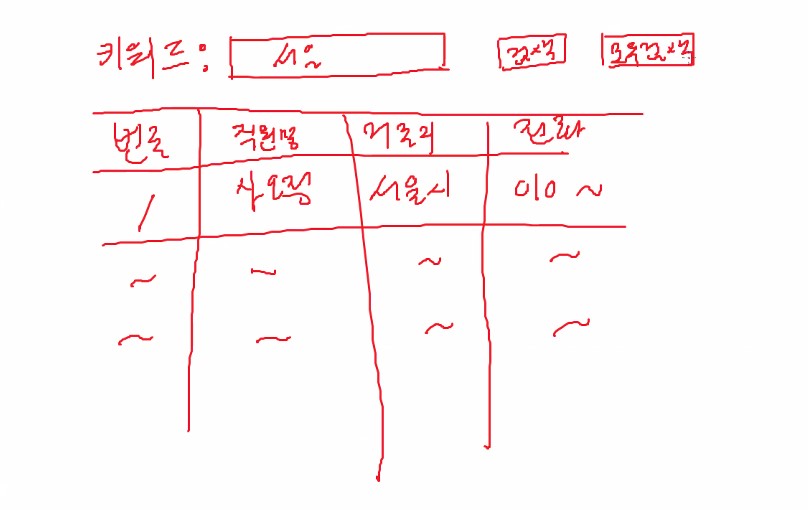 키워드 : 서울 검색 모두검색
번호 직원명 거주지 전화
1 사오정 서울시 010 ~
~ ~ ~ ~
~ ~ ~ ~